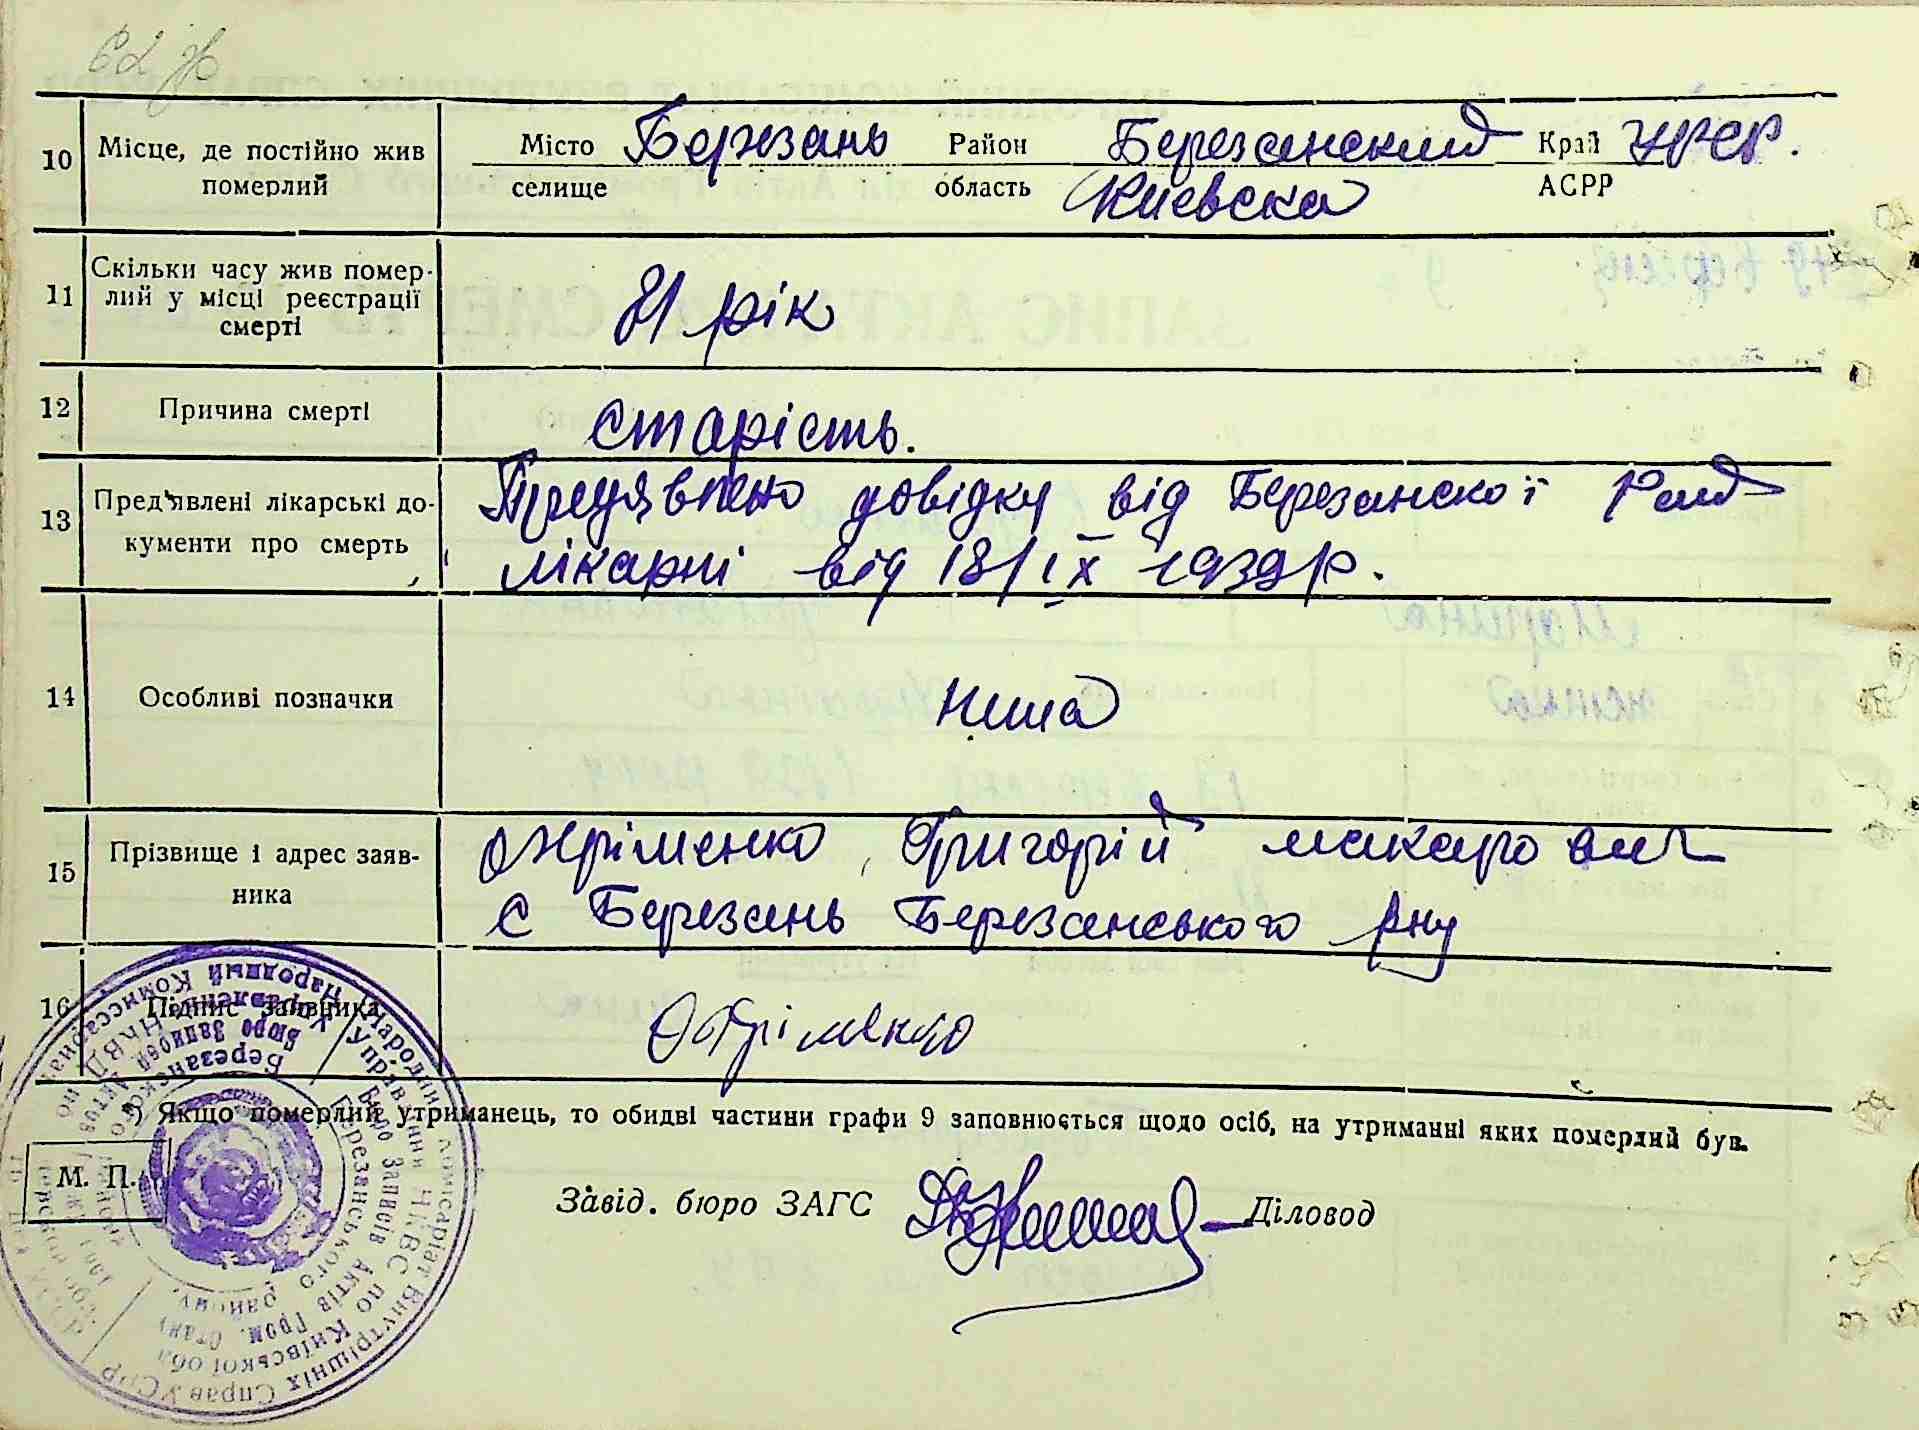 10 Місце, де постійно жив померлий
Місто Березань Район Березанский Край УРСР.
селище область Киевска АСРР
11 Скільки часу жив помер-
лий у місці реєстрації
смерті
81 рік
12 Причина смерті старість.
13 Пред'явлені лікарські до-
кументи про смерть
Предявлено довідку від Березанскої
лікарні від 18/IX 1939 р.
14 Особливі позначки Нима
15 Прізвище і адрес заяв-
ника
Охріменко, Григорій макарович
с Березань Березанського рну
16 Підпис заявника Охріменко
*) Якщо померлий утриманець, то обидві частини графи 9 заповнюється щодо осіб, на утриманні яких померлий був.
М. П.
Завід. бюро ЗАГС Діловод
Народний Комісаріат Внутрішніх Справ УСРР
Управління НКВС по Київській обл
Бюро Записів Актів Гром. Стану
Березанського району.